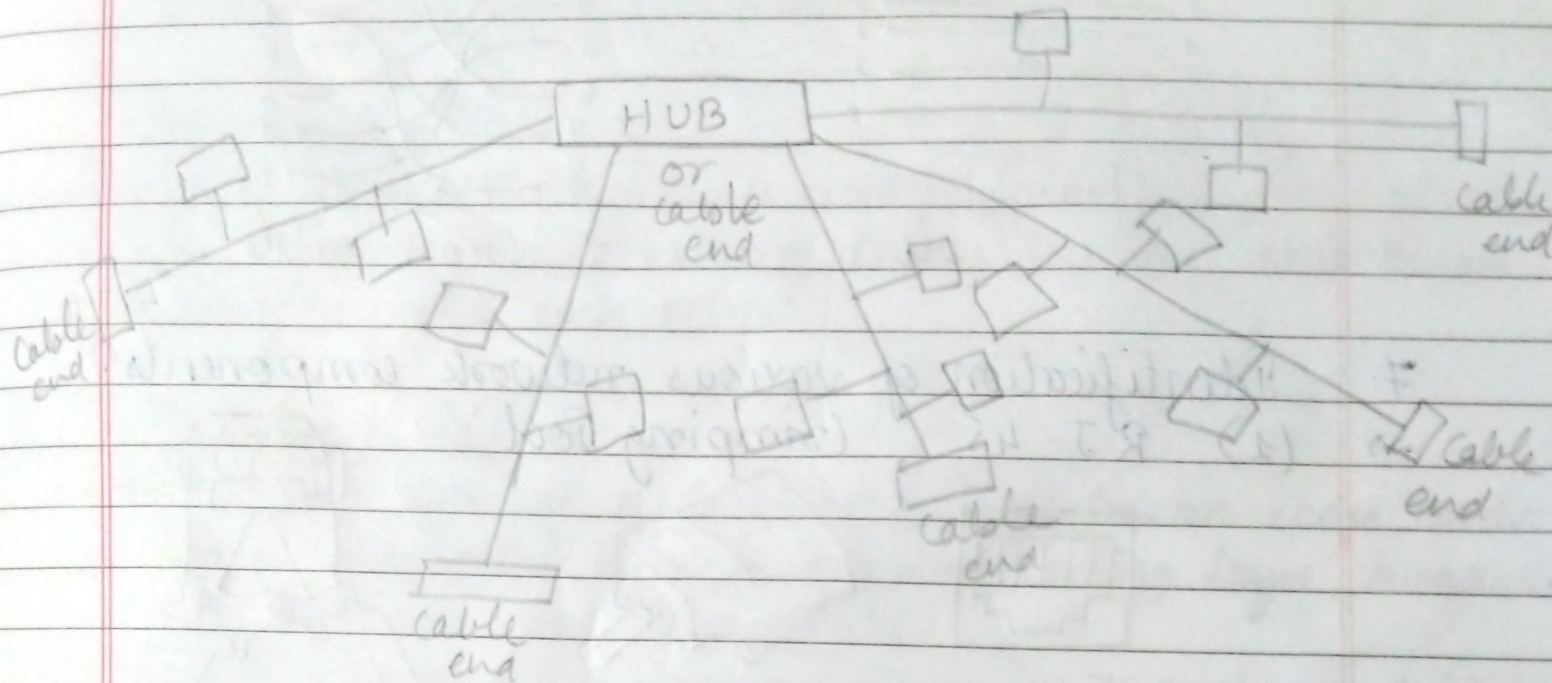 HUB
or
cable
end
cable
end
cable
end
cable
end
cable
end
cable
end